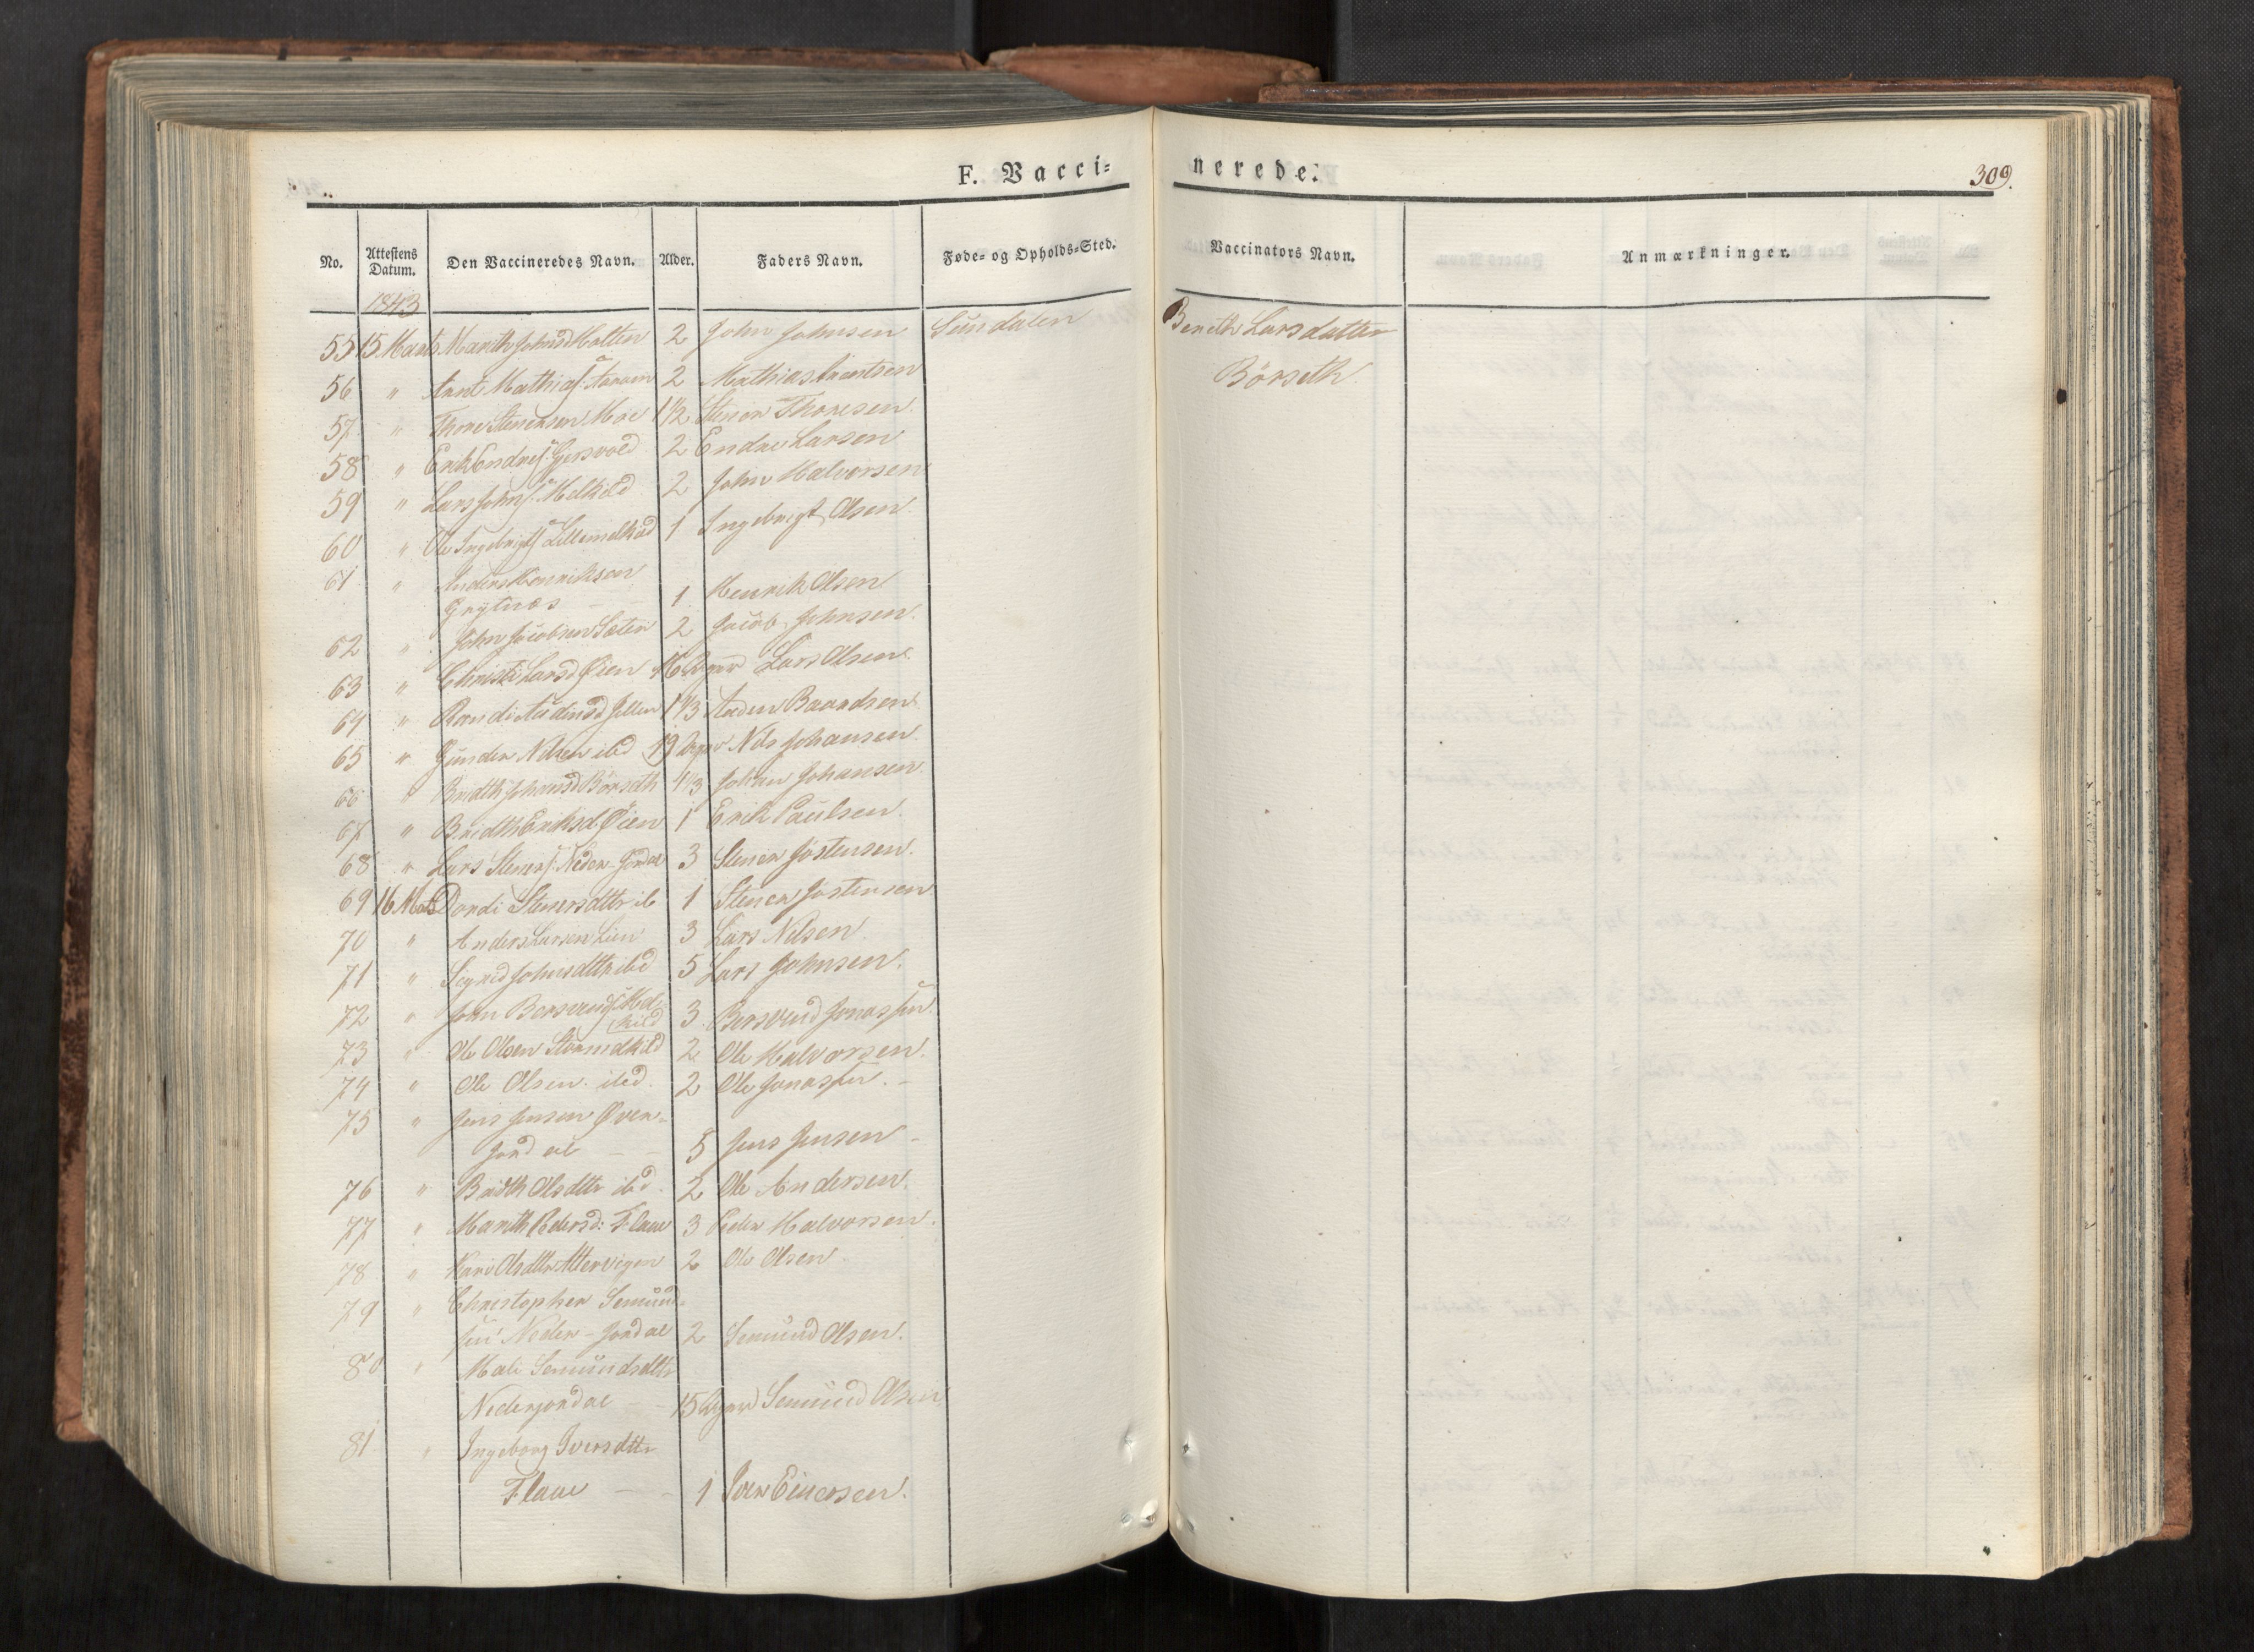 F. Vacci= nerede.
309.
No. Attestens Datum. Den Vaccineredes Navn. Alder. Faders Navn. Føde= og Opholds=Sted. Vaccinators Navn. Anmærkninger.
1843
55 15 Marts Marith Johnsd Holten 2 John Johnsen Sundalen Bereth Larsdatter
56 " Arnt Mathias: 2 Mathias Arentsen Börseth
57 " Thore Stenersen Moe 1 1/2 Stener Thoresen.
58 " Erik Endres: Gjersvold 2 Endre Larsen
59 " Lars Johns: Melkild 2 John Halvorsen
60 " Ole Ingebrigts: Lillemelkild 1 Ingebrigt Olsen
61 " Anders Henriksen
Grytnæs — 1 Henrik Olsen
62 " John Jacobsen Sæter 2 Jacob Johnsen.
63 " Christi Larsd Øien 16 Uger Lars Olsen.
64 " Randi Audensd Jellen 1 1/3 Auden Baardsen
65 " Gunder Nilsen ibd 19 Uger Nils Johansen.
66 " Bridth Johansd Börseth 1 1/3 Johan Johansen
67 " Bridth Eriksd. Øien 1 Erik Paulsen.
68 " Lars Steners: Neder-Jordal 3 Stener Jostensen.
69 16 Marts Dordi Stenersdttr ib 1 Stener Jostensen
70 " Anders Larsen Lien 3 Lars Nilsen
71 " Sigrid Johnsdttr ibd 5 Lars Johnsen.
72 " John Bersvends: Mel=
kild 3. Bersvend Jonassen.
73 " Ole Olsen Stormelkild 2 Ole Halvorsen.
74 " Ole Olsen. ibd. 2 Ole Jonassen. -
75 " Jens Jensen Över=
Jordal — — 5 Jens Jensen -
76 " Bridth Olsdttr ibd. 2 Ole Andersen.
77 " Marith Pedersd: Flaae 3 Peder Halvorsen.
78 " Kari Olsdttr 2 Ole Olsen.
79 " Christopher Semund=
sen Neder-Jordal 2 Semund Olsen.
80 " Mali Semundsdttr
Nederjordal — 15 Uger Semund Olsen
81 " Ingeborg Iversdttr
Flaae — - 1 Iver Einersen.